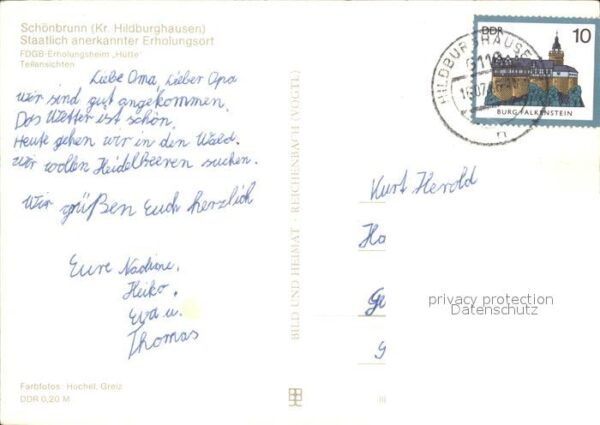 Schönbrunn (Kr. Hildburghausen)
Staatlich anerkannter Erholungsort
FDGB-Erholungsheim „Hütte"
Teilansichten
Liebe Oma, Lieber Opa
wir sind gut angekommen.
Das Wetter ist schön,
Heute gehen wir in den Wald.
wir wollen Heidelbeeren suchen.
Wir grüßen Euch herzlich
Eure Nadine,
Heiko,
Eva u.
Thomas
Farbfotos: Höchel, Greiz
DDR 0,20 M
BILD UND HEIMAT REICHENBACH (VOGTL)
DDR
10
BURG FALKENSTEIN
HILDBURGHAUSEN
Kurt Herold
Ha
Ge
privacy protection
Datenschutz